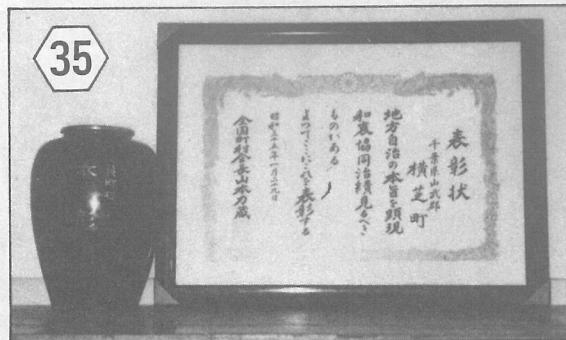 35
表彰状
千葉県山武郡
横芝町
地方自治の本旨を顕現
和衷協同治績見るべき
ものがある
よつてここにこれを表彰する
昭和三十五年一月二十九日
全国町村会長山本力蔵